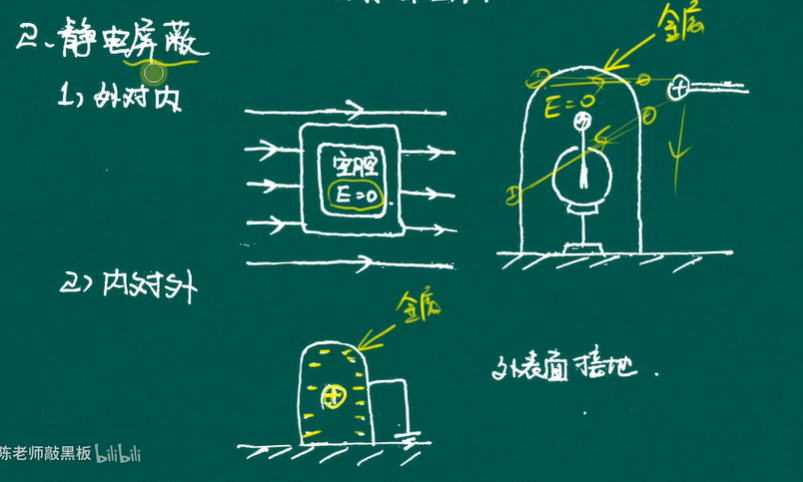 2、静电屏蔽
金属
1)外对内
E=0
空腔
E=0
2)内对外
金属
外表面接地.
陈老师敲黑板 bilibili